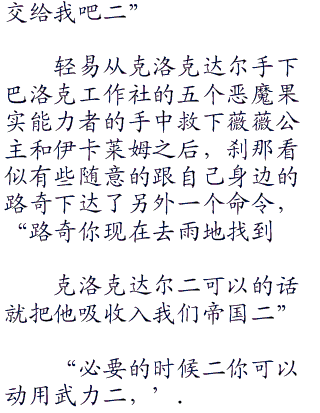 交给我吧二”
轻易从克洛克达尔手下
巴洛克工作社的五个恶魔果
实能力者的手中救下薇薇公
主和伊卡莱姆之后，刹那看
似有些随意的跟自己身边的
路奇下达了另外一个命令，
“路奇你现在去雨地找到
克洛克达尔二可以的话
就把他吸收入我们帝国二”
“必要的时候二你可以
动用武力二，’．